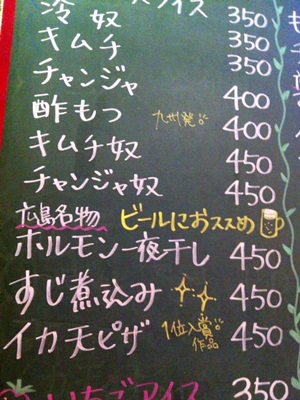 アイス 350
冷奴 350
キムチ 350
チャンジャ
酢もつ 九州発!! 400
キムチ奴 400
チャンジャ奴 450
広島名物 ビールにおススめ 450
ホルモン一夜干し 450
すじ煮込み 450
イカ天ピザ 1位入賞作品 450
いちごアイス 350